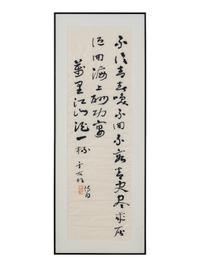 不信青春喚不回不容青史盡成灰
低回海上功宴
萬里江山酒一杯
于右任